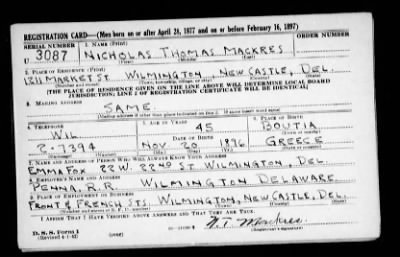 REGISTRATION CARD—(Men born on or after April 28, 1877 and on or before February 16, 1897)
SERIAL NUMBER
1. NAME (Print)
U 3087
NICHOLAS THOMAS MACKRES
2. PLACE OF RESIDENCE (Print)
1211 MARKET ST. WILMINGTON, NEW CASTLE, DEL.
[THE PLACE OF RESIDENCE GIVEN ON THE LINE ABOVE WILL DETERMINE LOCAL BOARD
JURISDICTION; LINE 2 OF REGISTRATION CERTIFICATE WILL BE IDENTICAL]
3. MAILING ADDRESS
SAME.
4. TELEPHONE
5. AGE IN YEARS
6. PLACE OF BIRTH
WIL
45
DATE OF BIRTH
2-7394
NOV. 20 1896
GREECE
7. NAME AND ADDRESS OF PERSON WHO WILL ALWAYS KNOW YOUR ADDRESS
EMMA FOX 22 W. 22ND ST. WILMINGTON, DEL.
8. EMPLOYER'S NAME AND ADDRESS
PENNA. R.R. WILMINGTON DELAWARE.
9. PLACE OF EMPLOYMENT OR BUSINESS
FRONT & FRENCH STS. WILMINGTON, NEW CASTLE, DEL.
I AFFIRM THAT I HAVE VERIFIED ABOVE ANSWERS AND THAT THEY ARE TRUE.
D. S. S. Form 1
(Revised 4-1-42)
N.T. Mackres